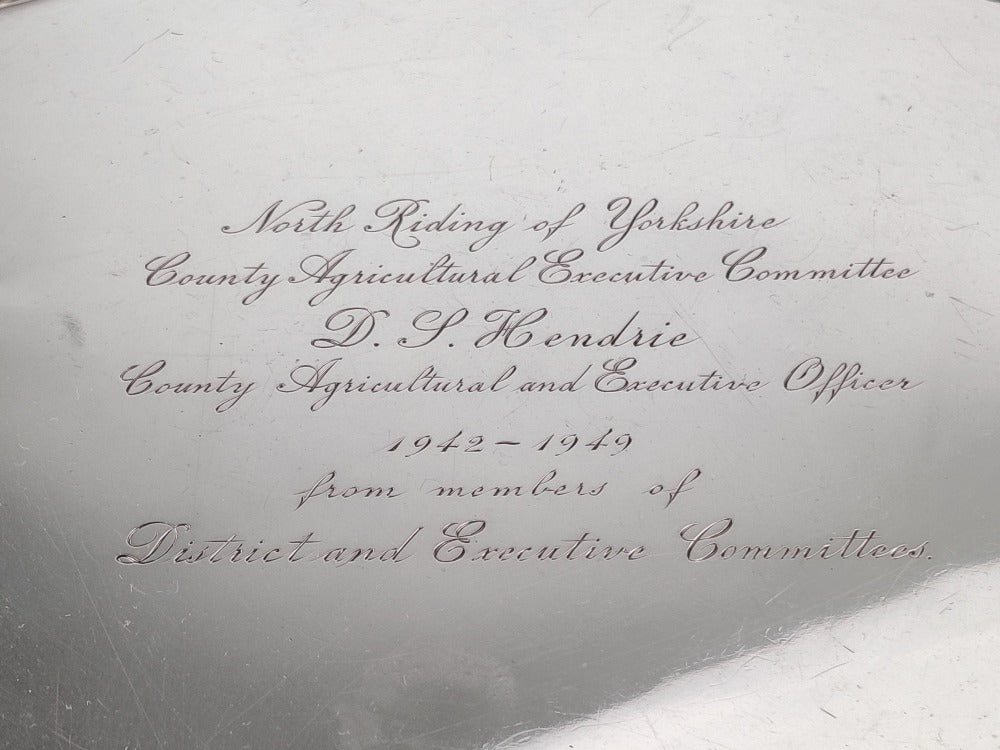 North Riding of Yorkshire
County Agricultural Executive Committee
D. S. Hendrie
County Agricultural and Executive Officer
1942 - 1949
from members of
District and Executive Committees.